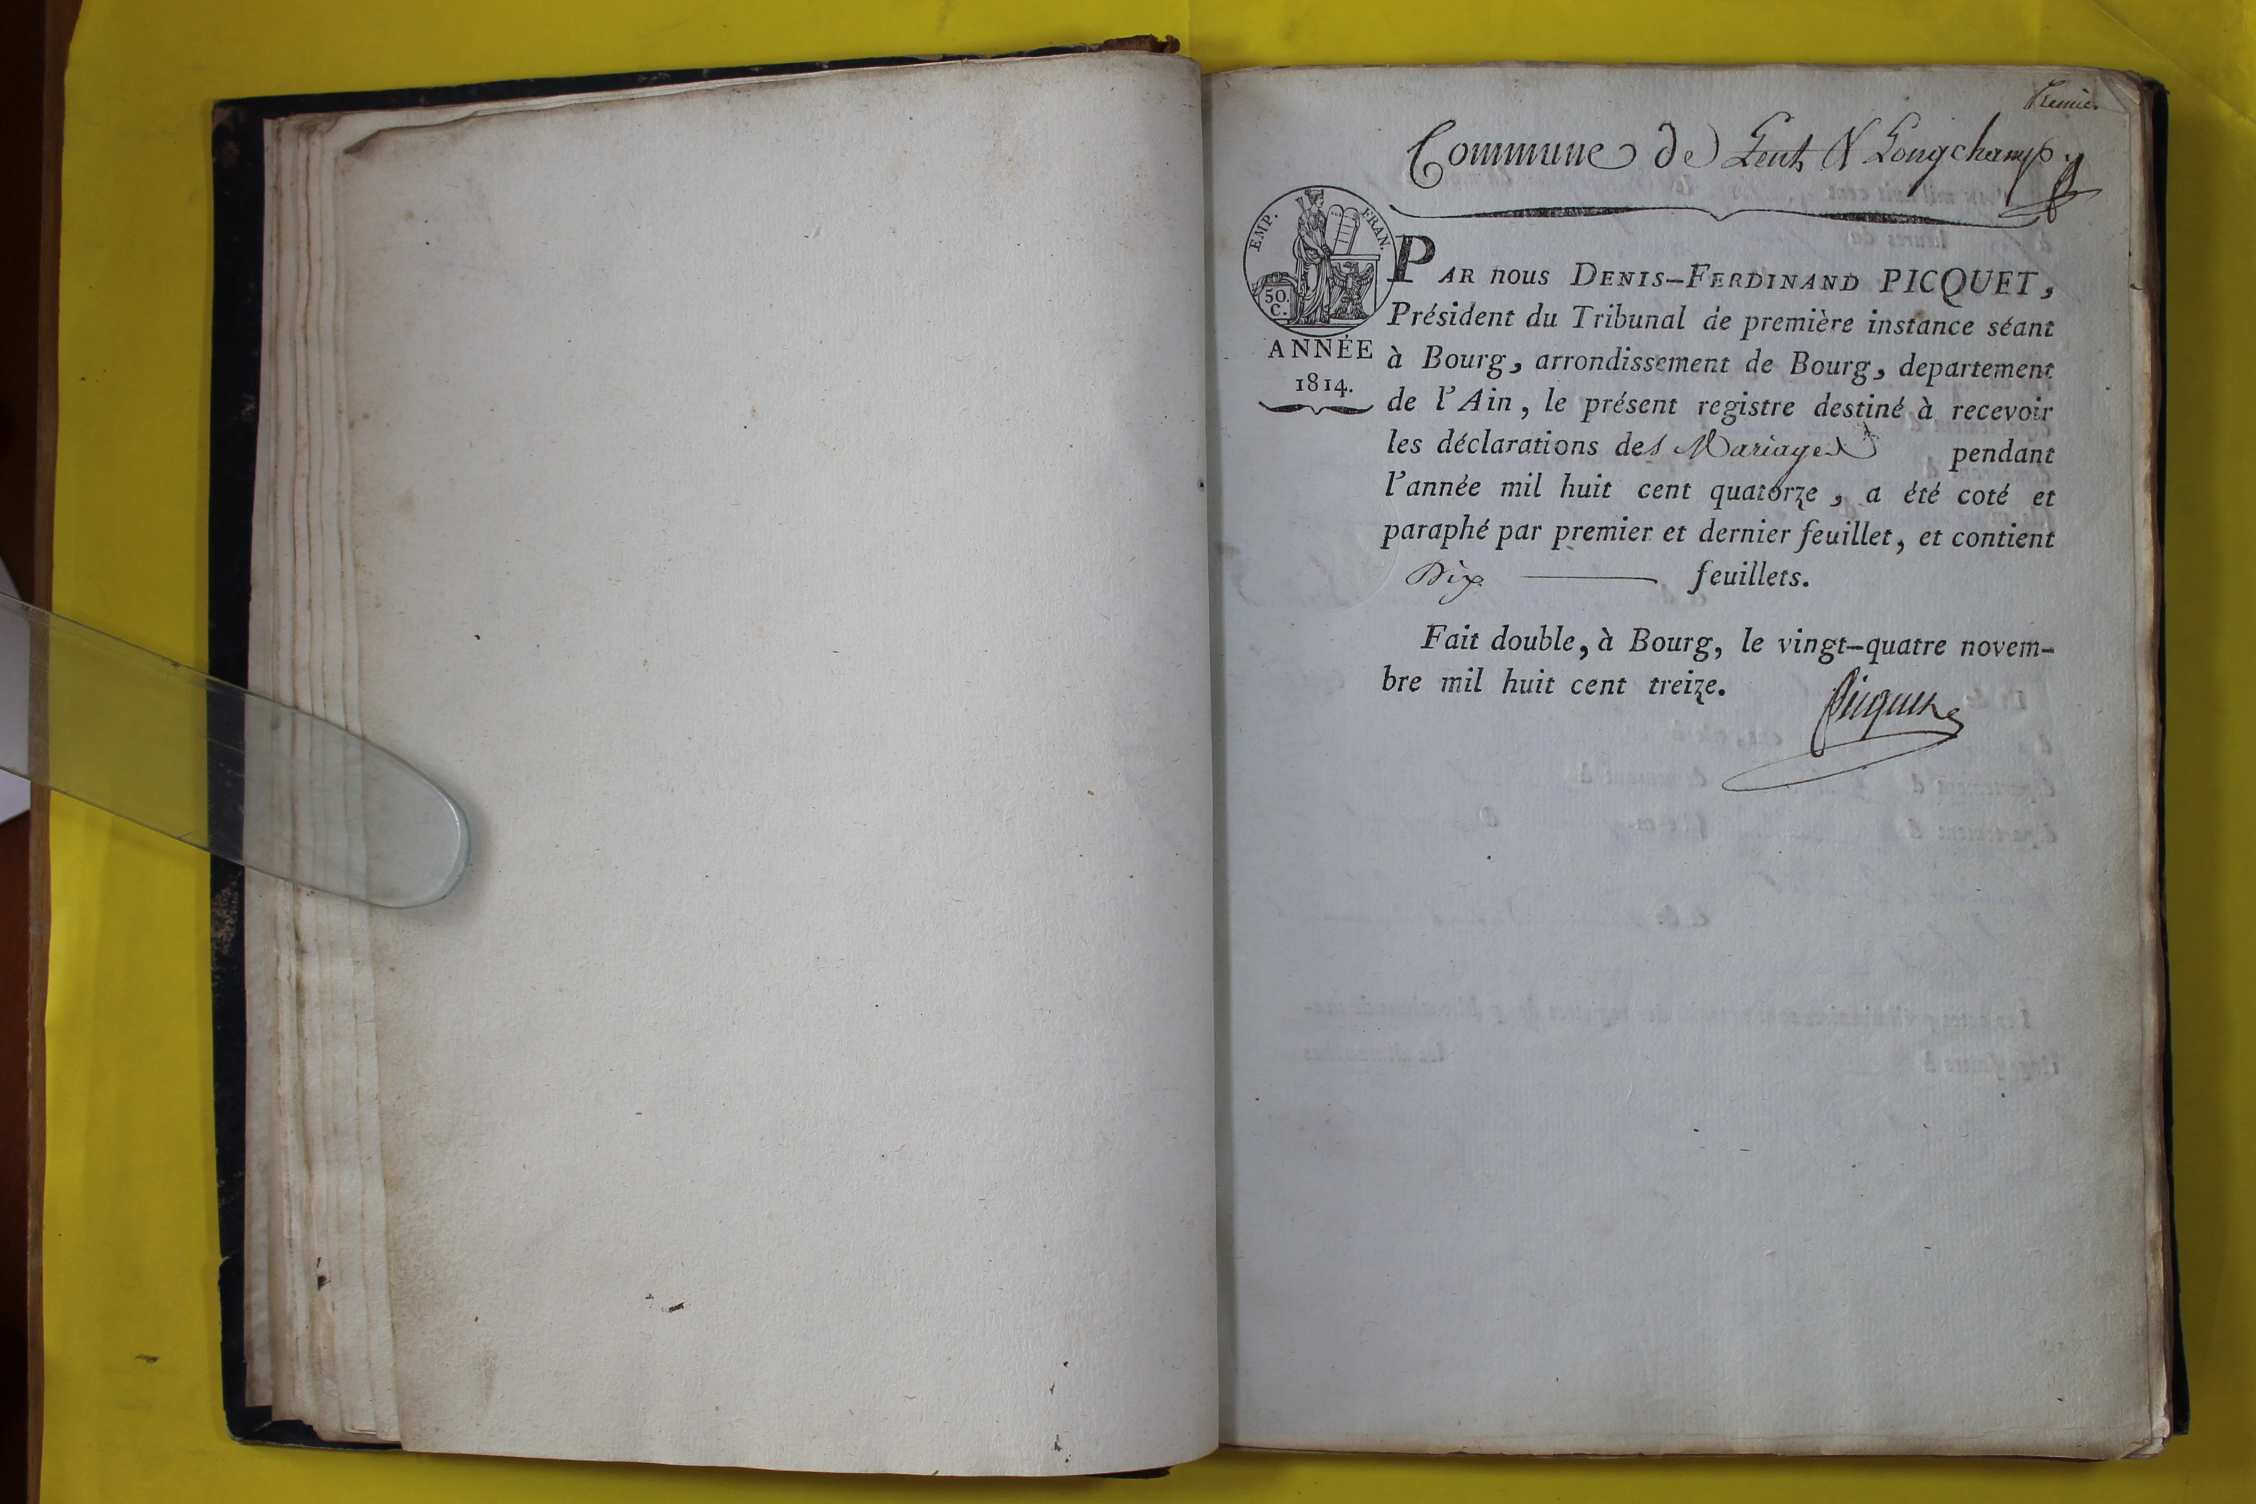 Premier
Commune de Lent & Longchamp
EMP. FRAN.
50.
C.
ANNÉE
1814.
PAR nous DENIS-FERDINAND PICQUET,
Président du Tribunal de première instance séant
à Bourg, arrondissement de Bourg, departement
de l'Ain, le présent registre destiné à recevoir
les déclarations des Mariages pendant
l'année mil huit cent quatorze, a été coté et
paraphé par premier et dernier feuillet, et contient
Dix feuillets.
Fait double, à Bourg, le vingt-quatre novem-
bre mil huit cent treize.
Picquet